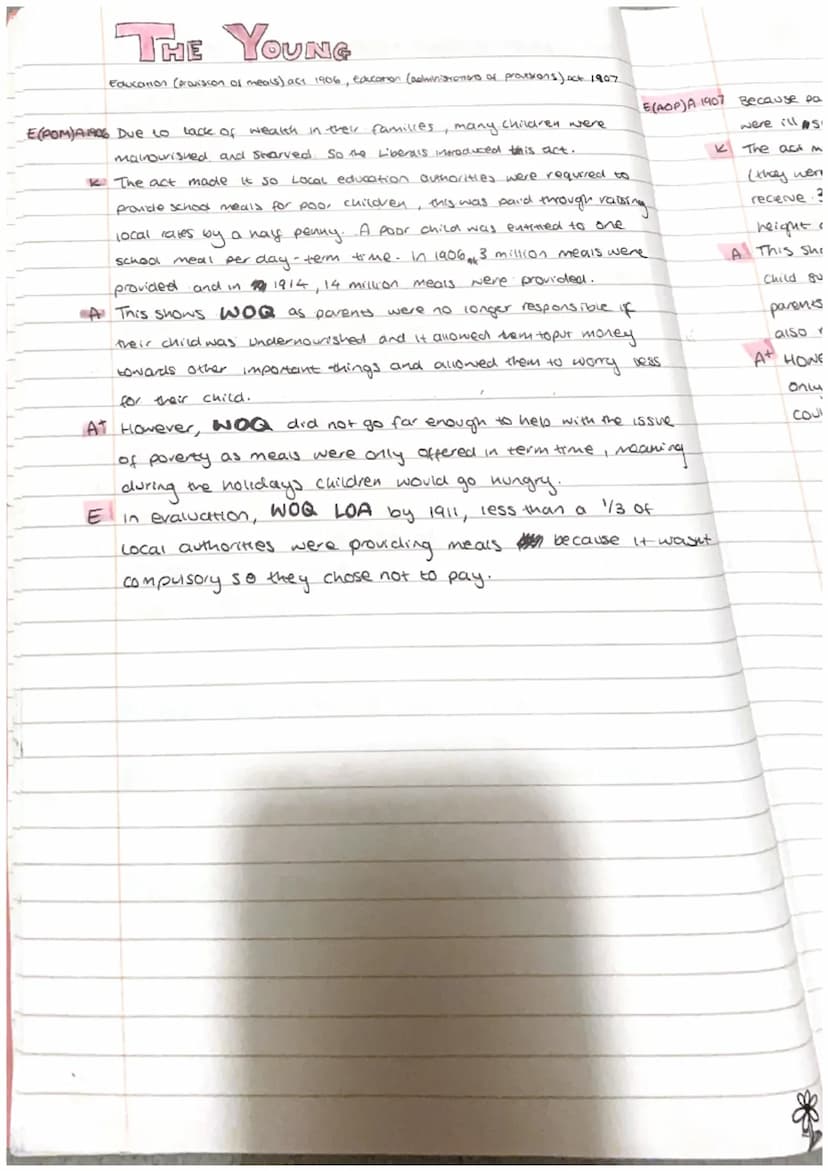 THE YOUNG
Education (provision of meals) act 1906, Education (administrative of provisions) act 1907
E(POM)A 1906 Due to lack of wealth in their families, many children were
malnourished and starved. So the Liberals introduced this act.
K The act made it so Local education authorities were required to
provide school meals for poor children, this was paid through raising
local rates by a half penny. A poor child was entitled to one
school meal per day - term time. In 1906, 3 million meals were
provided and in 1914, 14 million meals were provided.
A This shows WOQ as parents were no longer responsible if
their child was undernourished and it allowed them to put money
towards other important things and allowed them to worry less
for their child.
A+ However, WOQ did not go far enough to help with the issue
of poverty as meals were only offered in term time, meaning
during the holidays children would go hungry.
E In evaluation, WOQ LOA by 1911, less than a 1/3 of
Local authorities were providing meals because it wasnt
compulsory so they chose not to pay.
E(AOP)A 1907 Because pa
were ill
K The act m
(they wer
receive 3
height
A This sho
child
parents
also
A+ Howe
only
cou